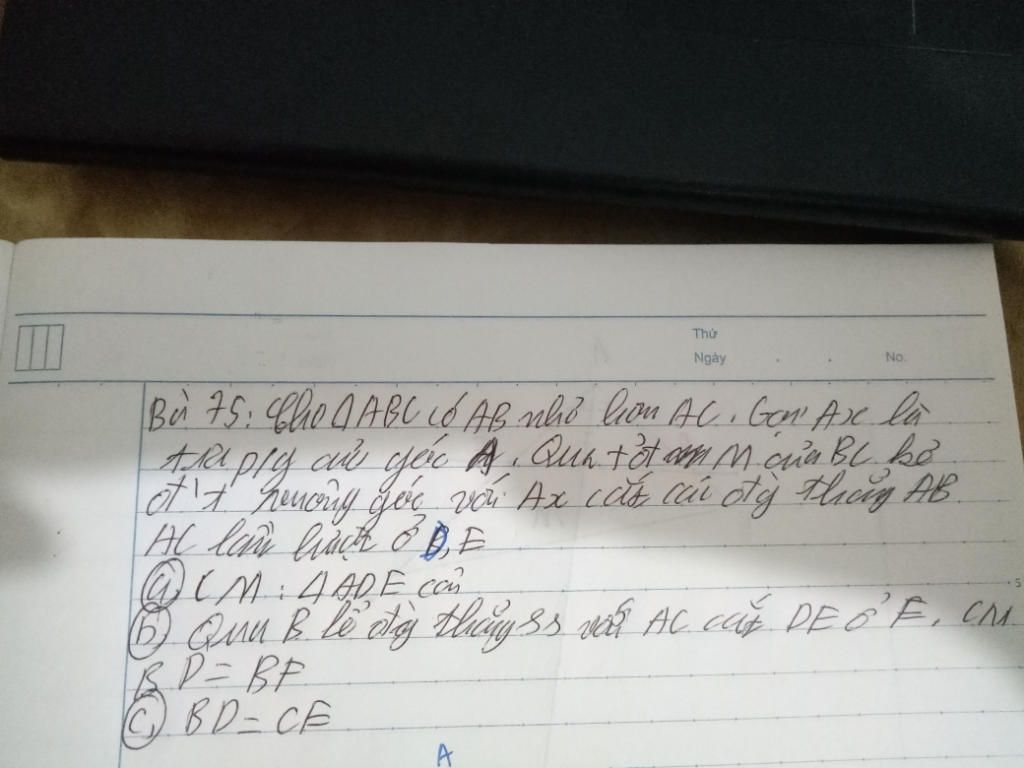 Thứ
Ngày . . No.
Bài 75: Cho ΔABC có AB nhỏ hơn AC. Gọi Ax là
tia p/g của góc A. Qua M của BC kẻ
đ't vuông góc với Ax cắt các đg thẳng AB
AC lần lượt ở D, E
a, CM: ΔADE cân
b, Qua B kẻ đg thẳng ss với AC cắt DE ở F. CM
BD = BF
c, BD = CE
A
5